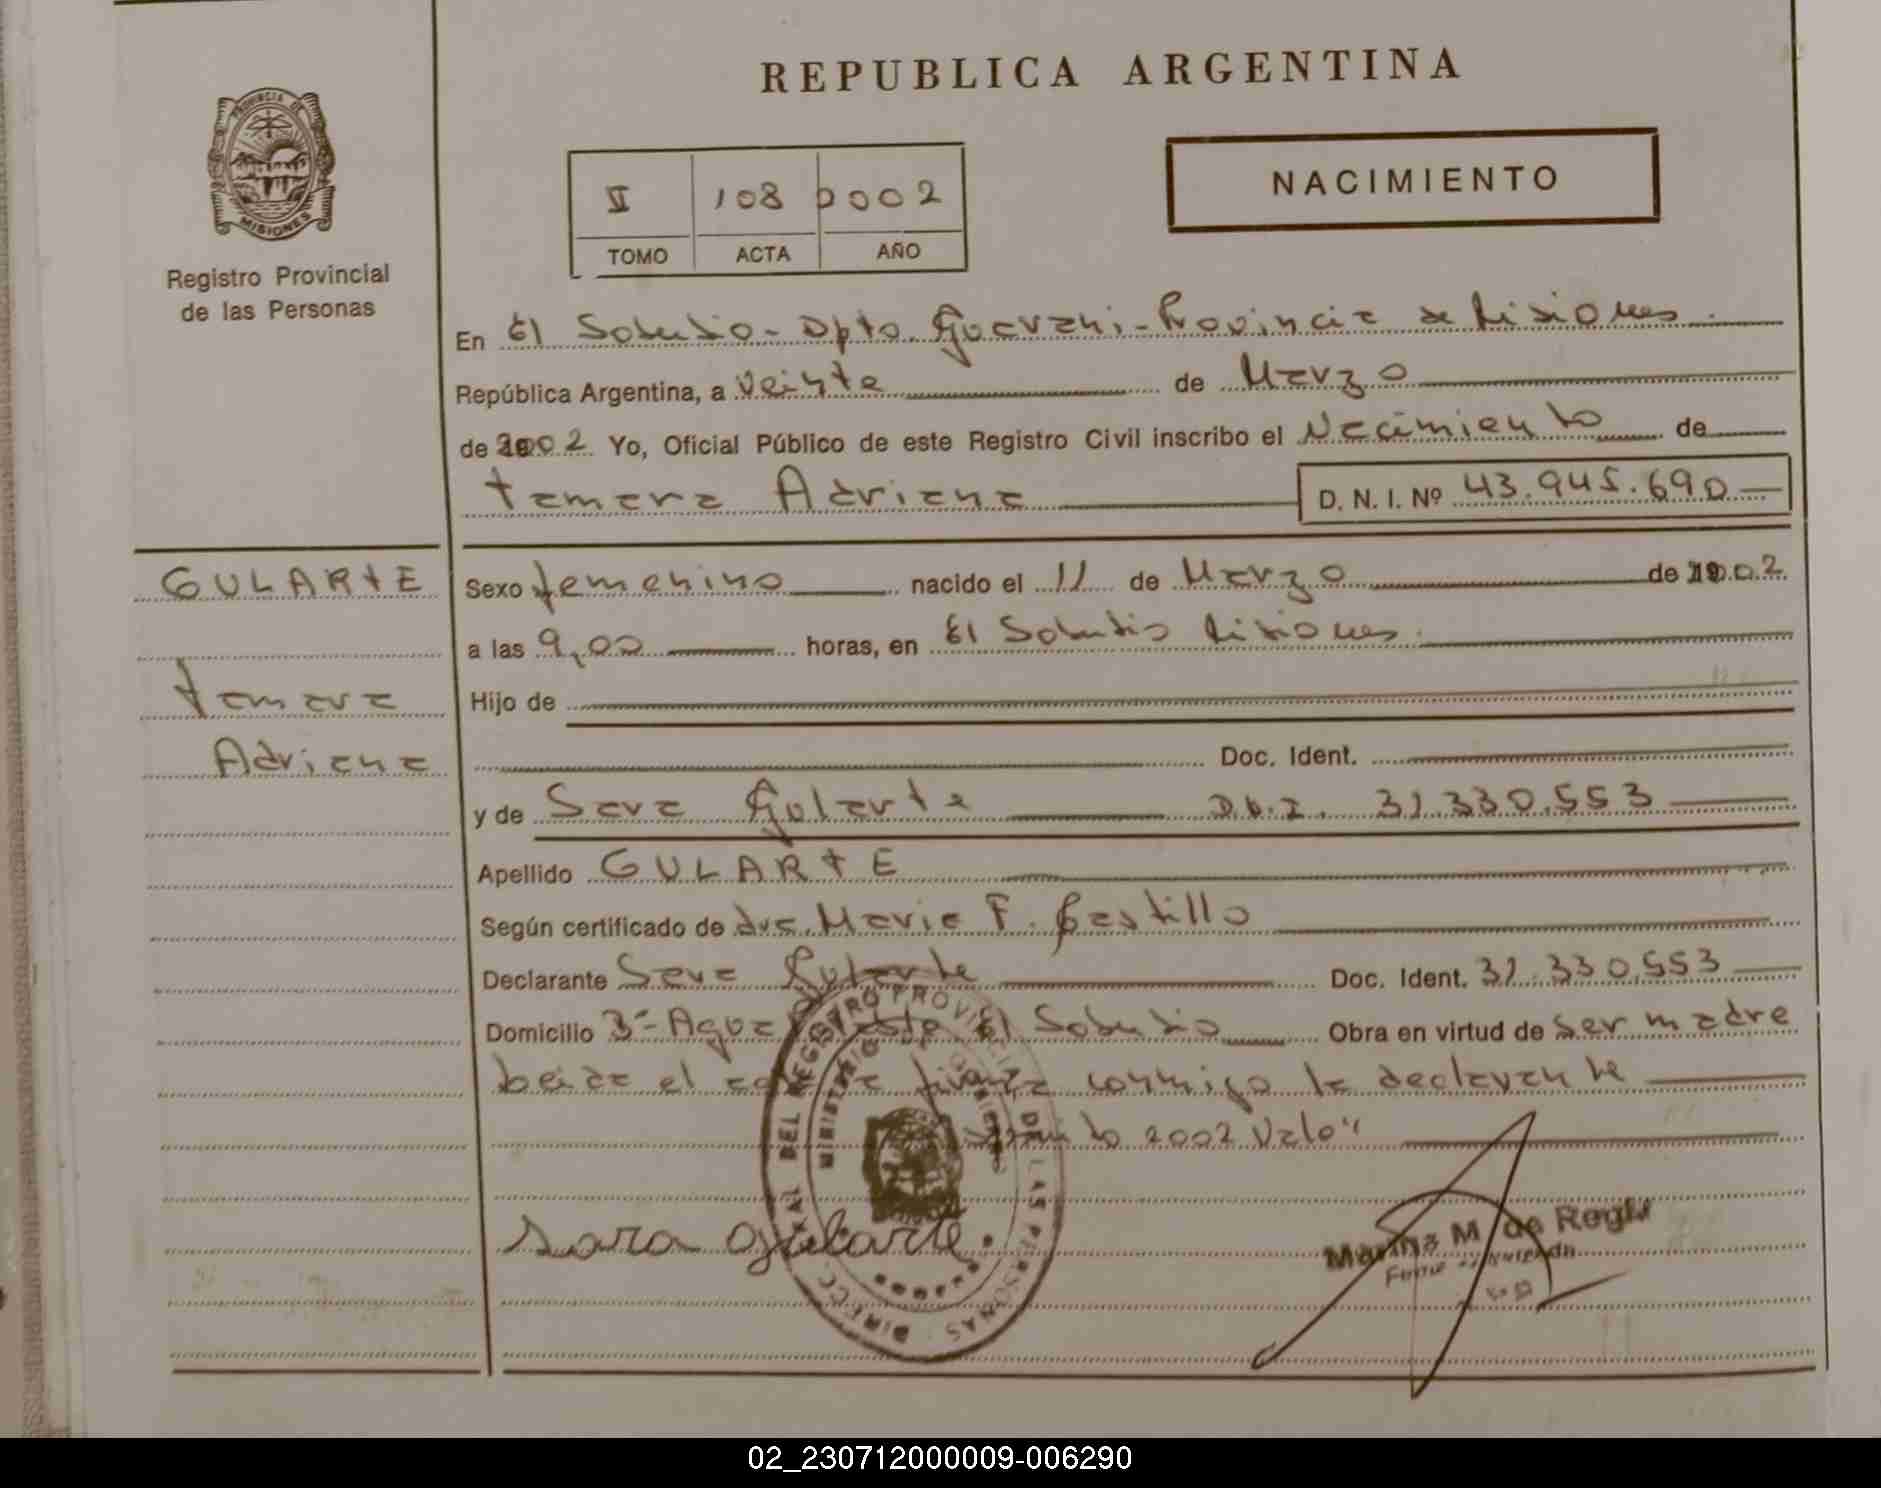 REPUBLICA ARGENTINA
PROVINCIA DE
MISIONES
Registro Provincial
de las Personas
II 108 2002
TOMO ACTA AÑO
NACIMIENTO
En El Soberbio - Dpto. Guarani - Provincia de Misiones.
República Argentina, a veinte de Marzo
de 2002 Yo, Oficial Público de este Registro Civil inscribo el Nacimiento de
Tamara Adriana D. N. I. Nº 43.945.690
GULARTE
Tamara
Adriana
Sexo femenino nacido el 11 de Marzo de 2002
a las 9,00 horas, en El Soberbio Misiones.
Hijo de
Doc. Ident.
y de Sara Gularte D.N.I. 31.330.553
Apellido GULARTE
Según certificado de dra. Maria F. Castillo
Declarante Sara Gularte Doc. Ident. 31.330.553
Domicilio El Soberbio Obra en virtud de ser madre
leida el acta firma conmigo la declarante
2002 Vale"
sara gularte.
DIRECC. GRAL DEL REGISTRO PROVINCIAL DE LAS PERSONAS
MINISTERIO DE GOBIERNO
Marina M. de Regis
02_230712000009-006290